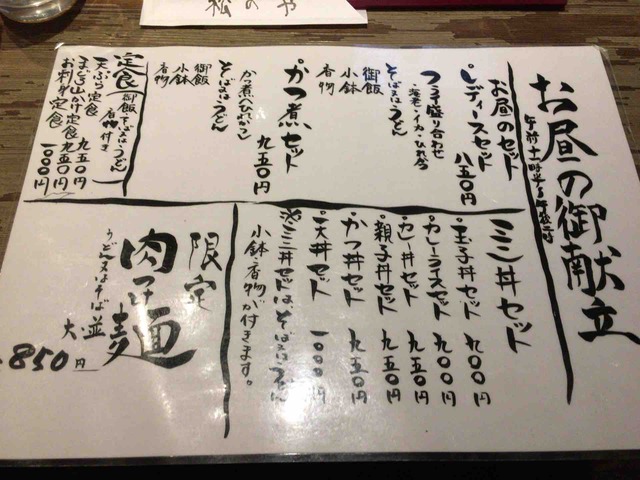 松のや
お昼の御献立
お昼のセット
・レディースセット 八五〇円
フライ盛り合わせ
・海老・イカ・ひれかつ
そば又はうどん
御飯
小鉢
香物
かつ煮セット 九五〇円
かつ煮(ひれかつ)
そば又はうどん
御飯
小鉢
香物
定食 御飯 そば又はうどん
香物 付き
天ぷら定食 九五〇円
まぐろ山かけ定食 九五〇円
お刺身定食 一〇〇〇円
ミニ丼セット
・玉子丼セット 九〇〇円
・カレーライスセット 九〇〇円
・カレー丼セット 九五〇円
・親子丼セット 九五〇円
・かつ丼セット 九五〇円
・天丼セット 一〇〇〇円
※ミニ丼セットはそば又はうどん
小鉢・香物が付きます。
限定
肉つけ麺
うどん又はそば 並
大
850円